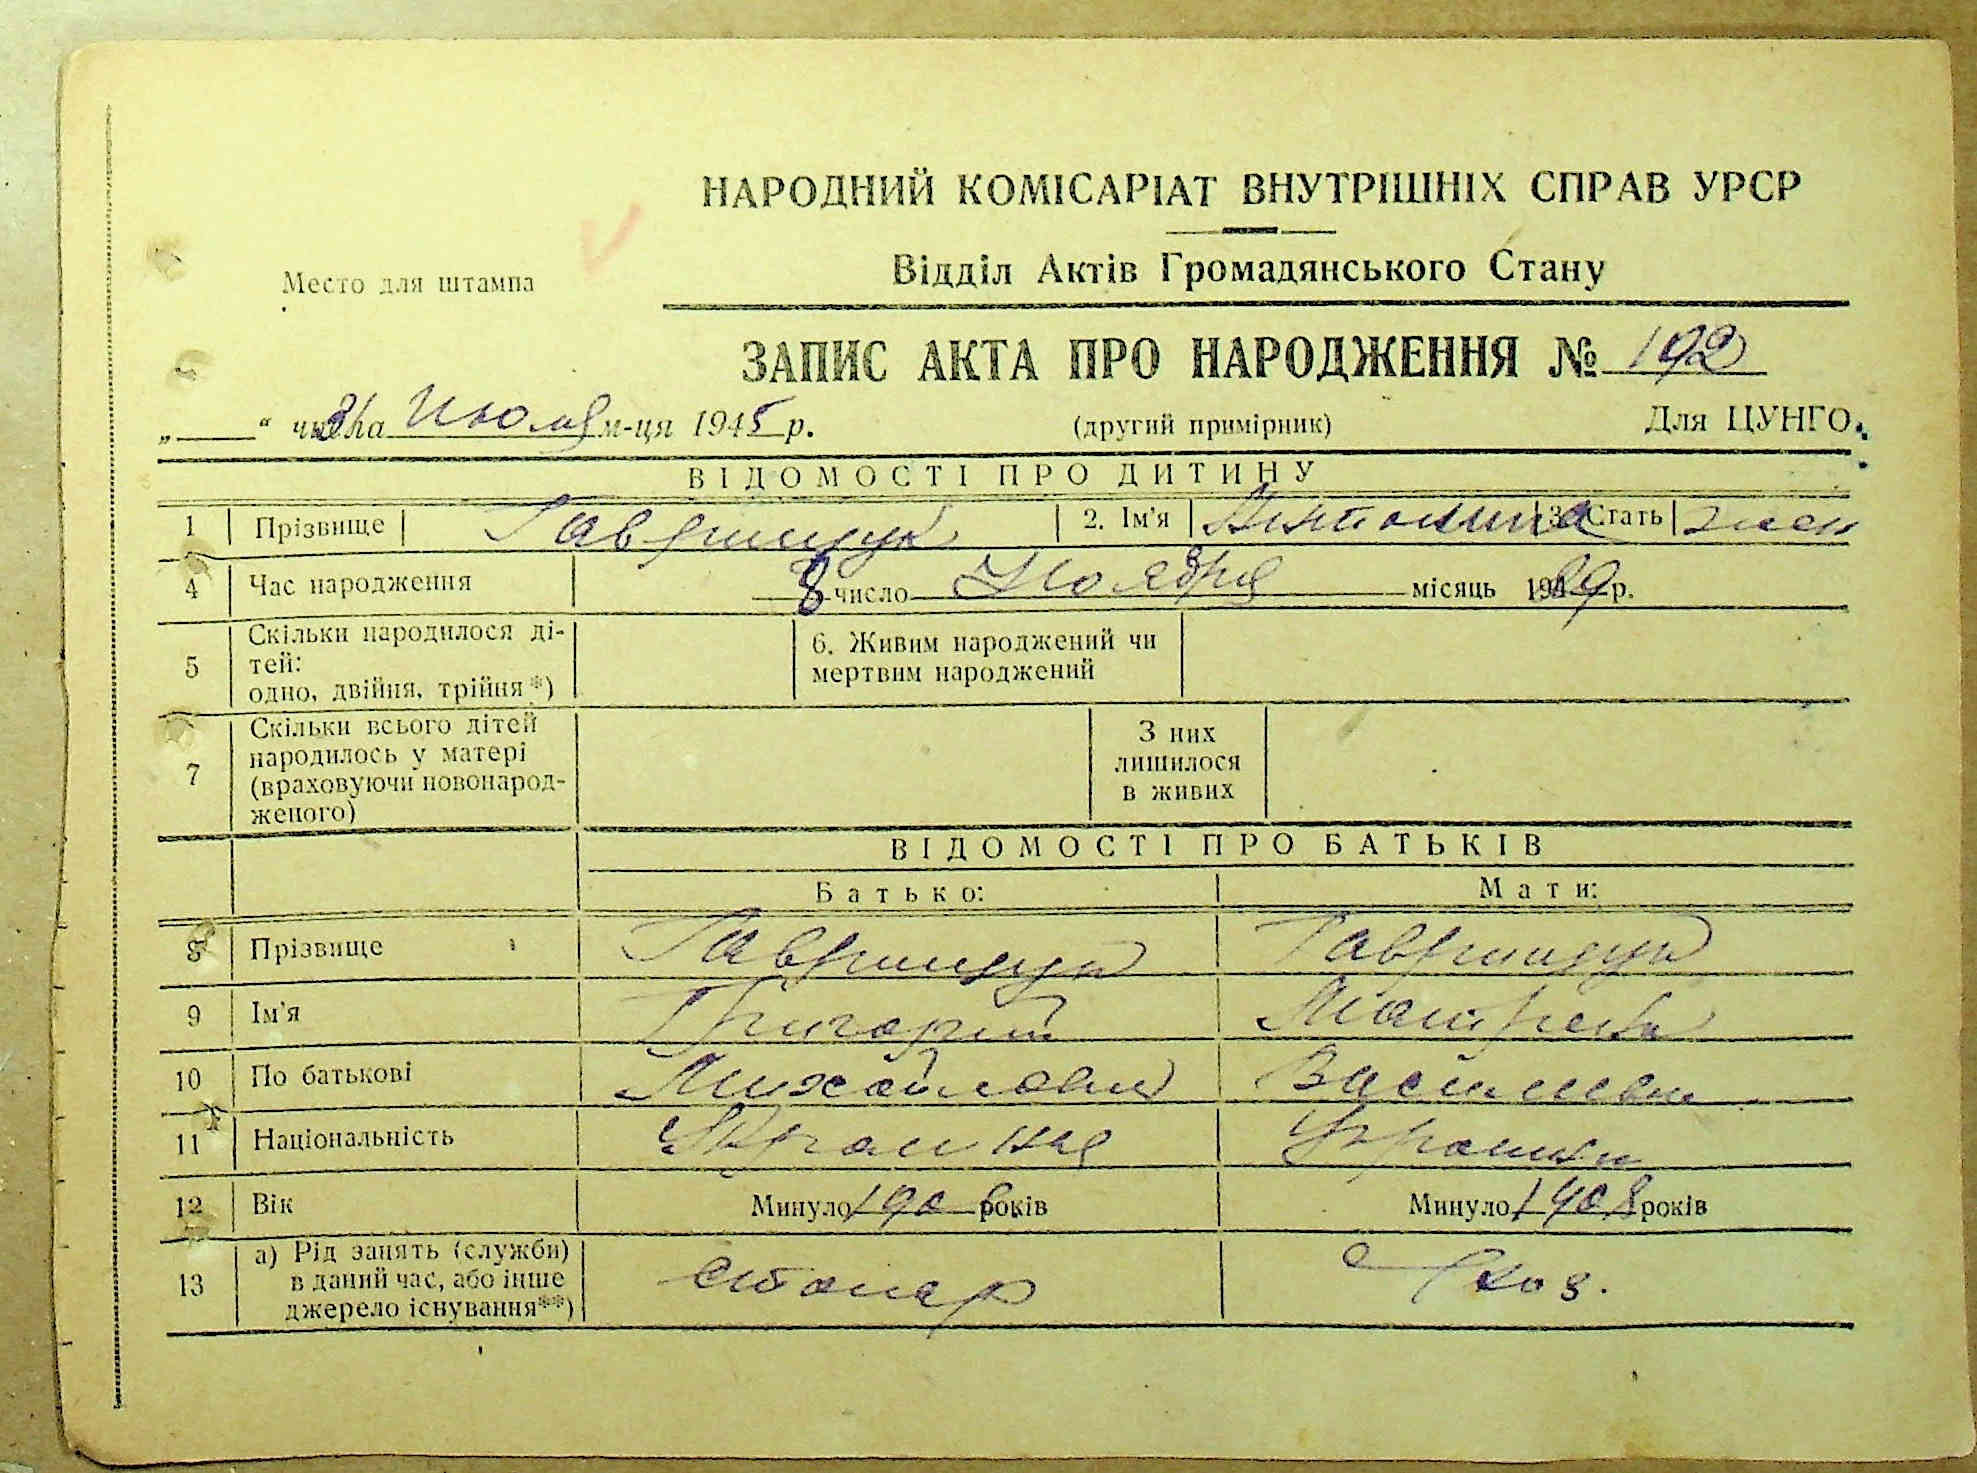 НАРОДНИЙ КОМІСАРІАТ ВНУТРІШНІХ СПРАВ УРСР
Место для штампа
Відділ Актів Громадянського Стану
ЗАПИС АКТА ПРО НАРОДЖЕННЯ № 192
„ “ числа Июля м-ця 1945 р. (другий примірник) Для ЦУНГО.
ВІДОМОСТІ ПРО ДИТИНУ
1 Прізвище Гаврищук 2. Ім'я Антонина 3. Стать жен
4 Час народження 8 число Ноября місяць 1939 р.
5 Скільки народилося ді-
тей:
одно, двійня, трійня*)
6. Живим народжений чи
мертвим народжений
7 Скільки всього дітей
народилось у матері
(враховуючи новонарод-
женого)
З них
лишилося
в живих
ВІДОМОСТІ ПРО БАТЬКІВ
Батько: Мати:
8 Прізвище Гаврищук Гаврищук
9 Ім'я Григорий Матрена
10 По батькові Михайлович Васильевна
11 Національність Украинец Украинка
12 Вік Минуло 190 років Минуло 1908 років
13 а) Рід занять (служби)
в даний час, або інше
джерело існування**)
столяр